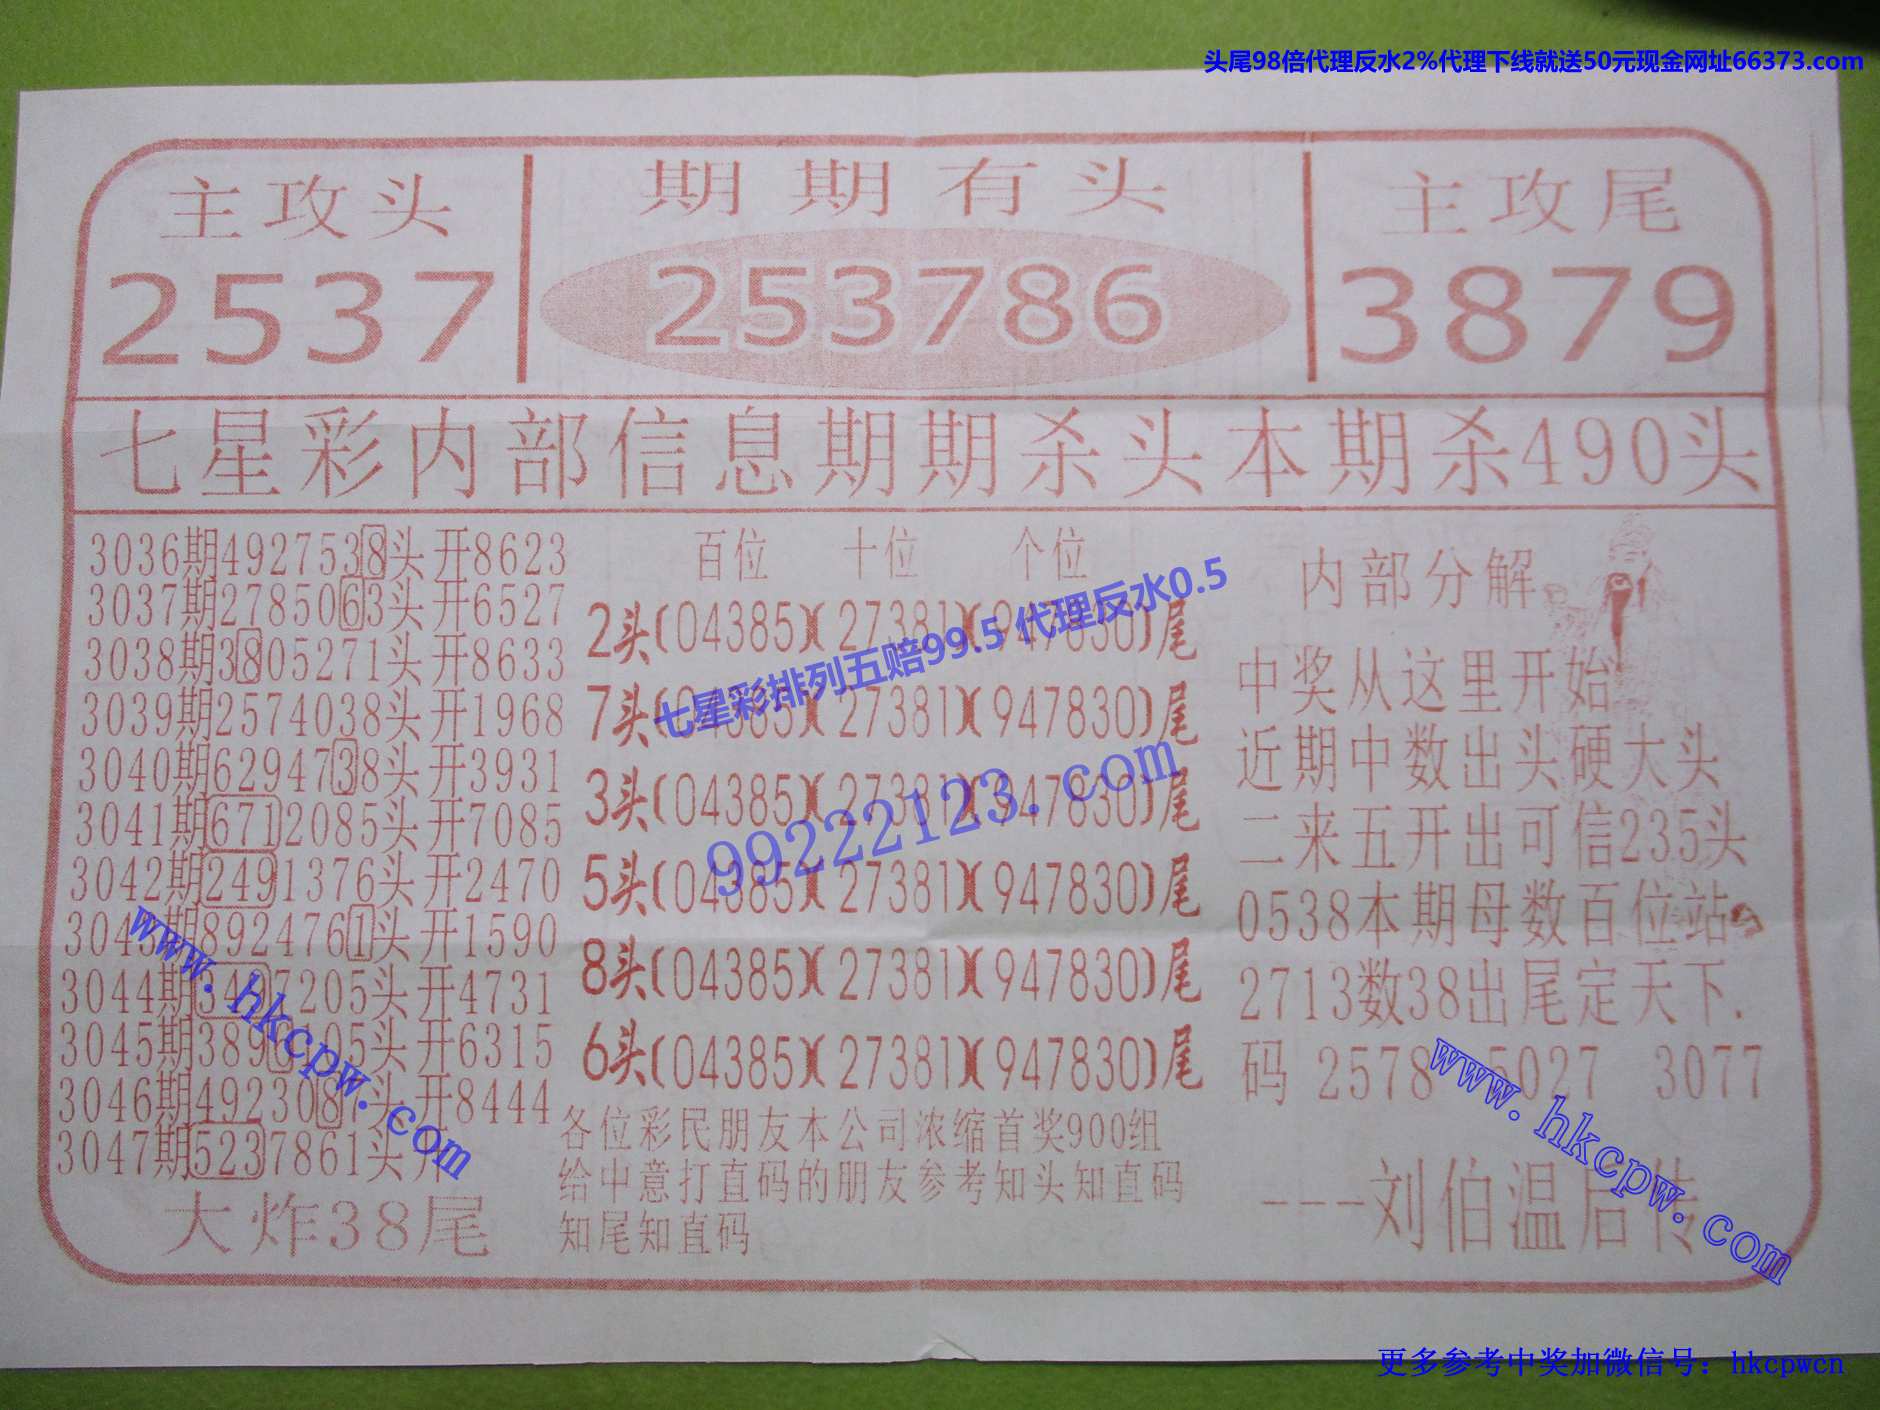 头尾98倍代理反水2%代理下线就送50元现金网址66373.com
主攻头
2537
期期有头
253786
主攻尾
3879
七星彩内部信息期期杀头本期杀490头
3036期4927538头开8623
3037期2785063头开6527
3038期3805271头开8633
3039期2574038头开1968
3040期6294738头开3931
3041期6712085头开7085
3042期2491376头开2470
304 期8924761头开1590
3044期34 7205头开4731
3045期389 5头开6315
3046期492308 头开8444
3047期5237861头开
大炸38尾
百位 十位 个位
2头(04385)(27381)(947830)尾
7头(04385)(27381)(947830)尾
3头(04385)(27381)(947830)尾
5头(04385)(27381)(947830)尾
8头(04385)(27381)(947830)尾
6头(04385)(27381)(947830)尾
各位彩民朋友本公司浓缩首奖900组
给中意打直码的朋友参考知头知直码
知尾知直码
内部分解
中奖从这里开始
近期中数出头硬大头
二来五开出可信235头
0538本期母数百位站
2713数38出尾定天下.
码 2578 5027 3077
---刘伯温后传
七星彩排列五赔99.5 代理反水0.5
99222123.com
www.hkcpw.com
www.hkcpw.com
更多参考中奖加微信号：hkcpwcn